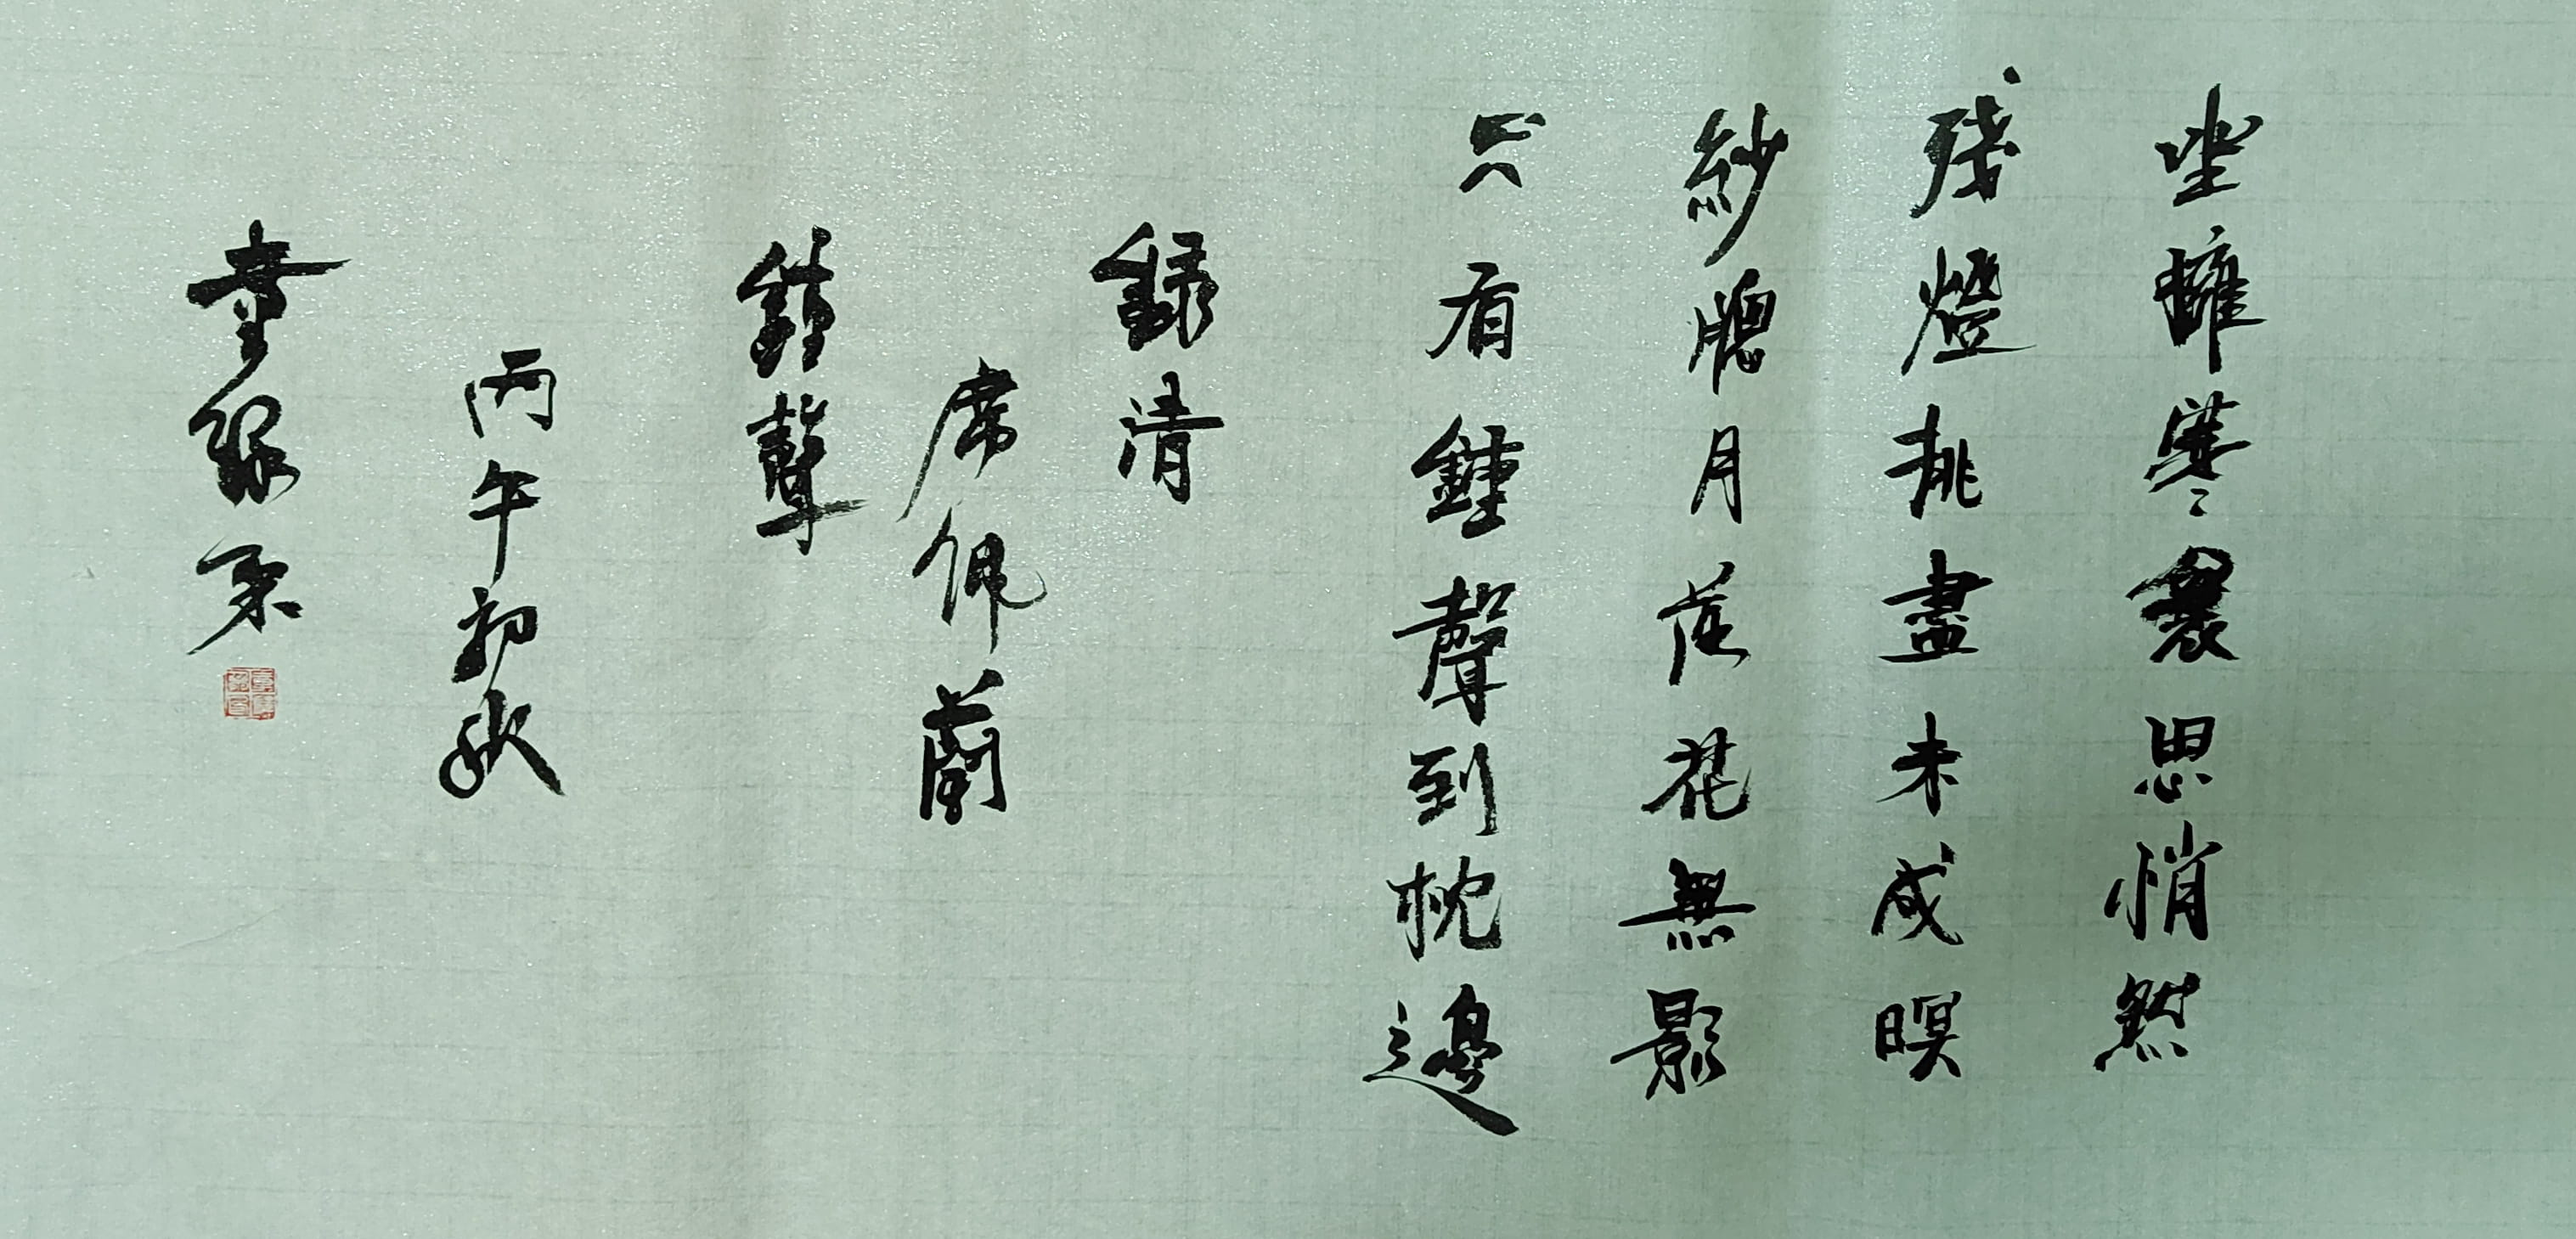 坐擁寒衾思悄然
殘燈挑盡未成暝
紗牕月落花無影
只有鐘聲到枕邊
錄清
席佩蘭
鐘聲
丙午初秋